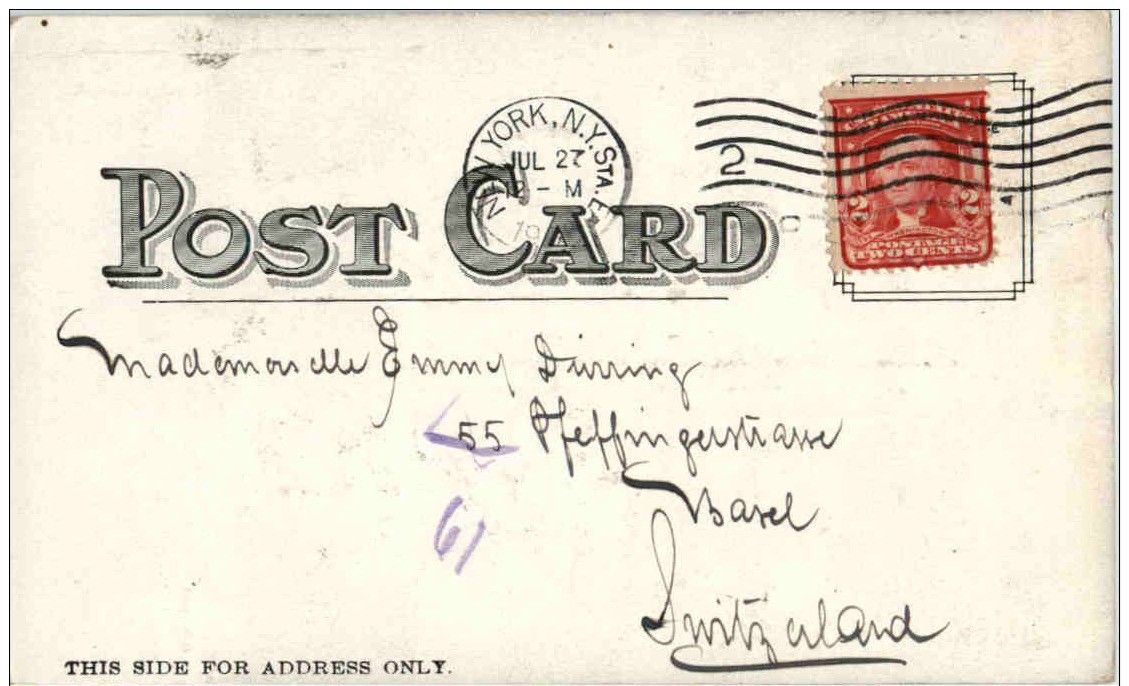 NEW YORK, N.Y. STA. E
JUL 27
2 - M
19
2
POSTAGE
2 2
TWO CENTS
POST CARD
Mademoiselle Emmy Dürring
55 Pfeffingerstrasse
61
Basel
Switzerland
THIS SIDE FOR ADDRESS ONLY.